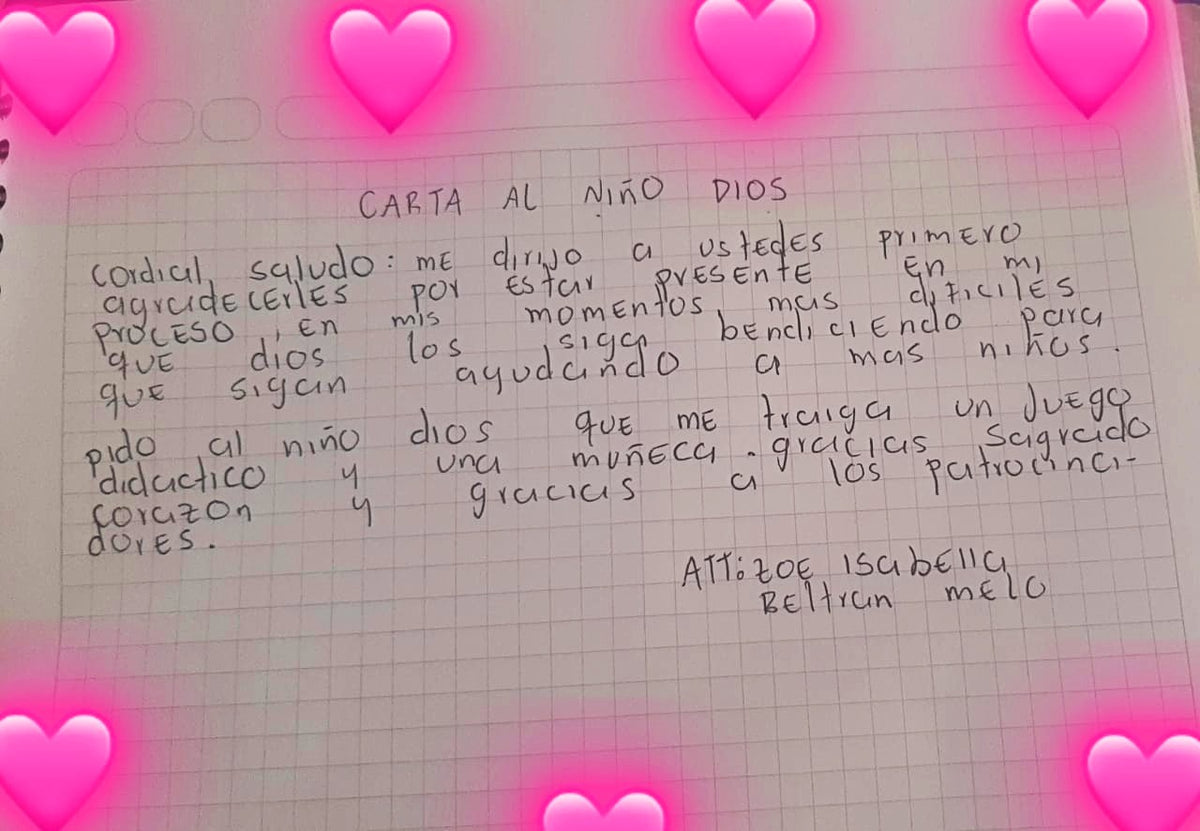 CARTA AL NIÑO DIOS
cordial saludo: ME dirijo a ustedes primero
agradecerles por Estar presente En mi
proceso, En mis momentos mas dificiles
que dios los siga bendiciendo para
que sigan ayudando a mas niños.
pido al niño dios que me traiga un Juego
didactico y una muñeca. gracias Sagrado
corazon y gracias a los patrocina-
dores.
ATT: ZOE Isabella
Beltran melo